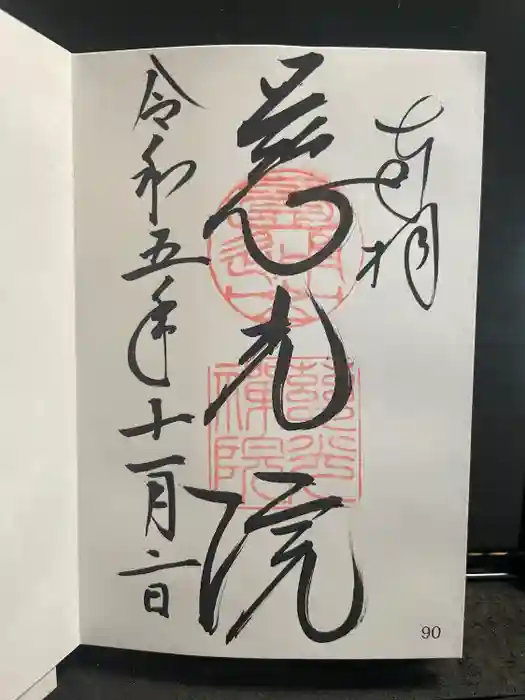 奉拝
慈光院
慈光禅院
令和五年十一月二日
90